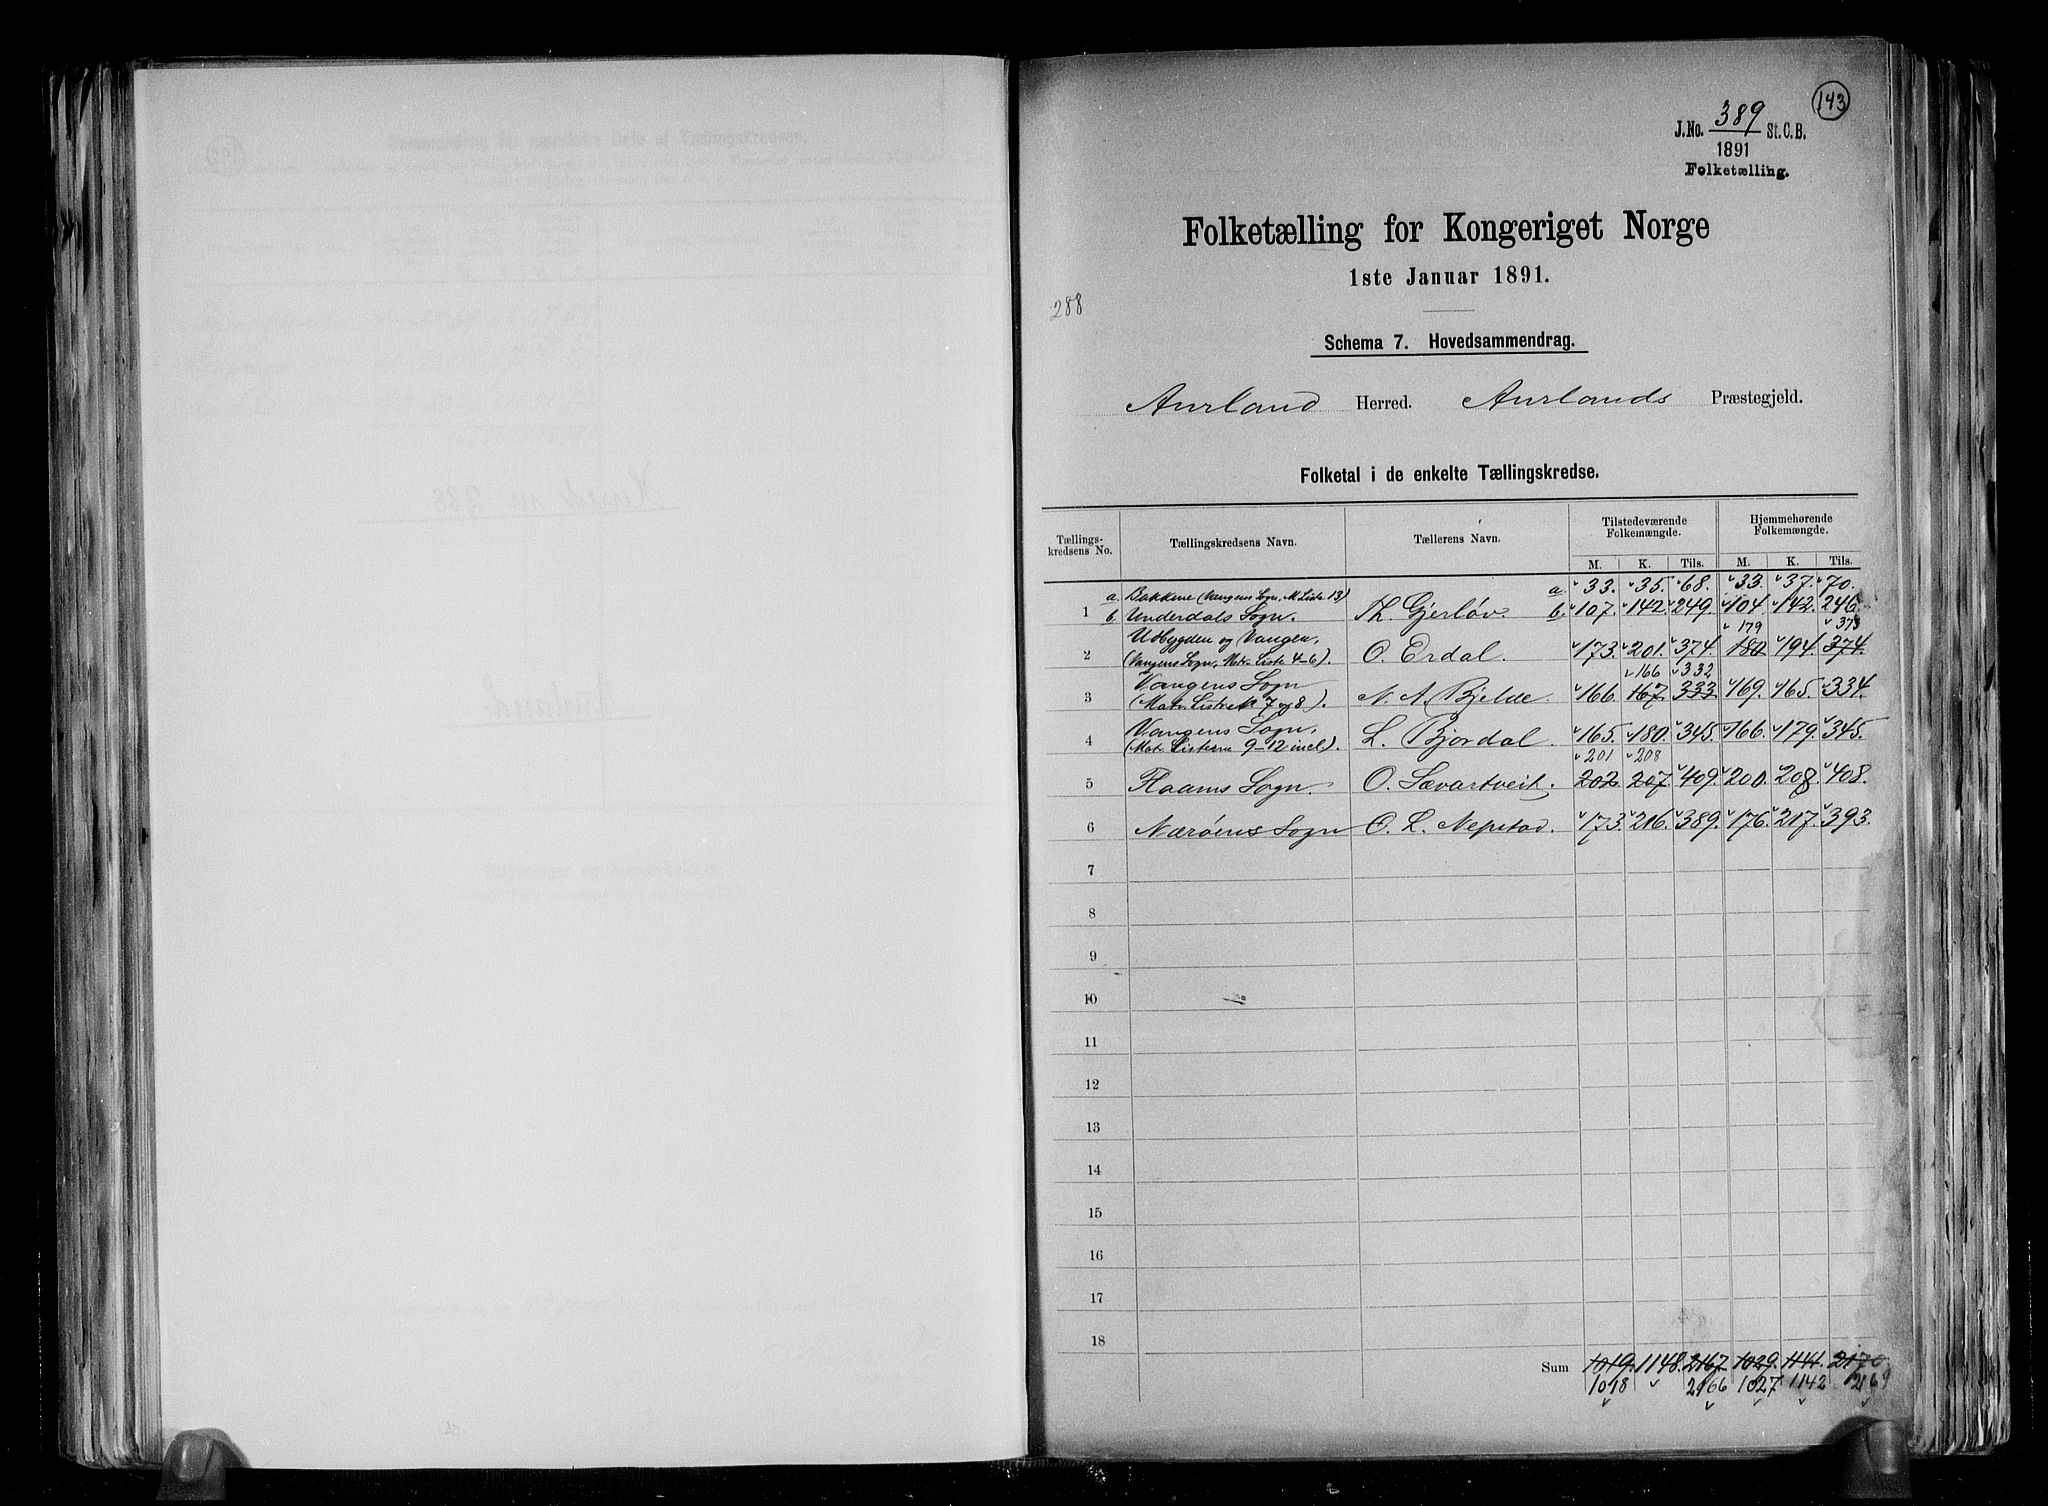 143
J.No. 389 St. C. B.
1891
Folketælling.
Folketælling for Kongeriget Norge
1ste Januar 1891.
288
Schema 7. Hovedsammendrag.
Aurland Herred. Aurlands Præstegjeld.
Folketal i de enkelte Tællingskredse.
Tællings-kredsens No. Tællingskredsens Navn. Tællerens Navn. Tilstedeværende Folkemængde. Hjemmehørende Folkemængde.
M. K. Tils. M. K. Tils.
a Bakkene (Vangens Sogn, M. Liste 13) a. 33. 35. 68. 33. 37. 70.
1 b. Underdals Sogn. Th. Gjerløv. b. 107. 142. 249. 104. 142. 246.
Udbygden og Vangen, 179 373
2 (Vangens Sogn, Matr. Liste 4-6). O. Erdal. 173. 201. 374. 180 194. 374.
Vangens Sogn 166 332
3 (Matr. Listerne 7 og 8). N. A. Bjelde. 166 167 333 169. 165. 334.
Vangens Sogn,
4 (Mat. Listerne 9-12 incl). L. Bjordal. 165. 180. 345. 166. 179. 345.
201 208
5 Flaams Sogn. O. Sævartveit. 202 207. 409. 200. 208. 408.
6 Nærøens Sogn O. L. Nepstad. 173. 216. 389. 176. 217. 393.
7
8
9
10
11
12
13
14
15
16
17
18
Sum 1019. 1148. 2167 1029. 1144. 2170
1018 2166 1027 1142 2169